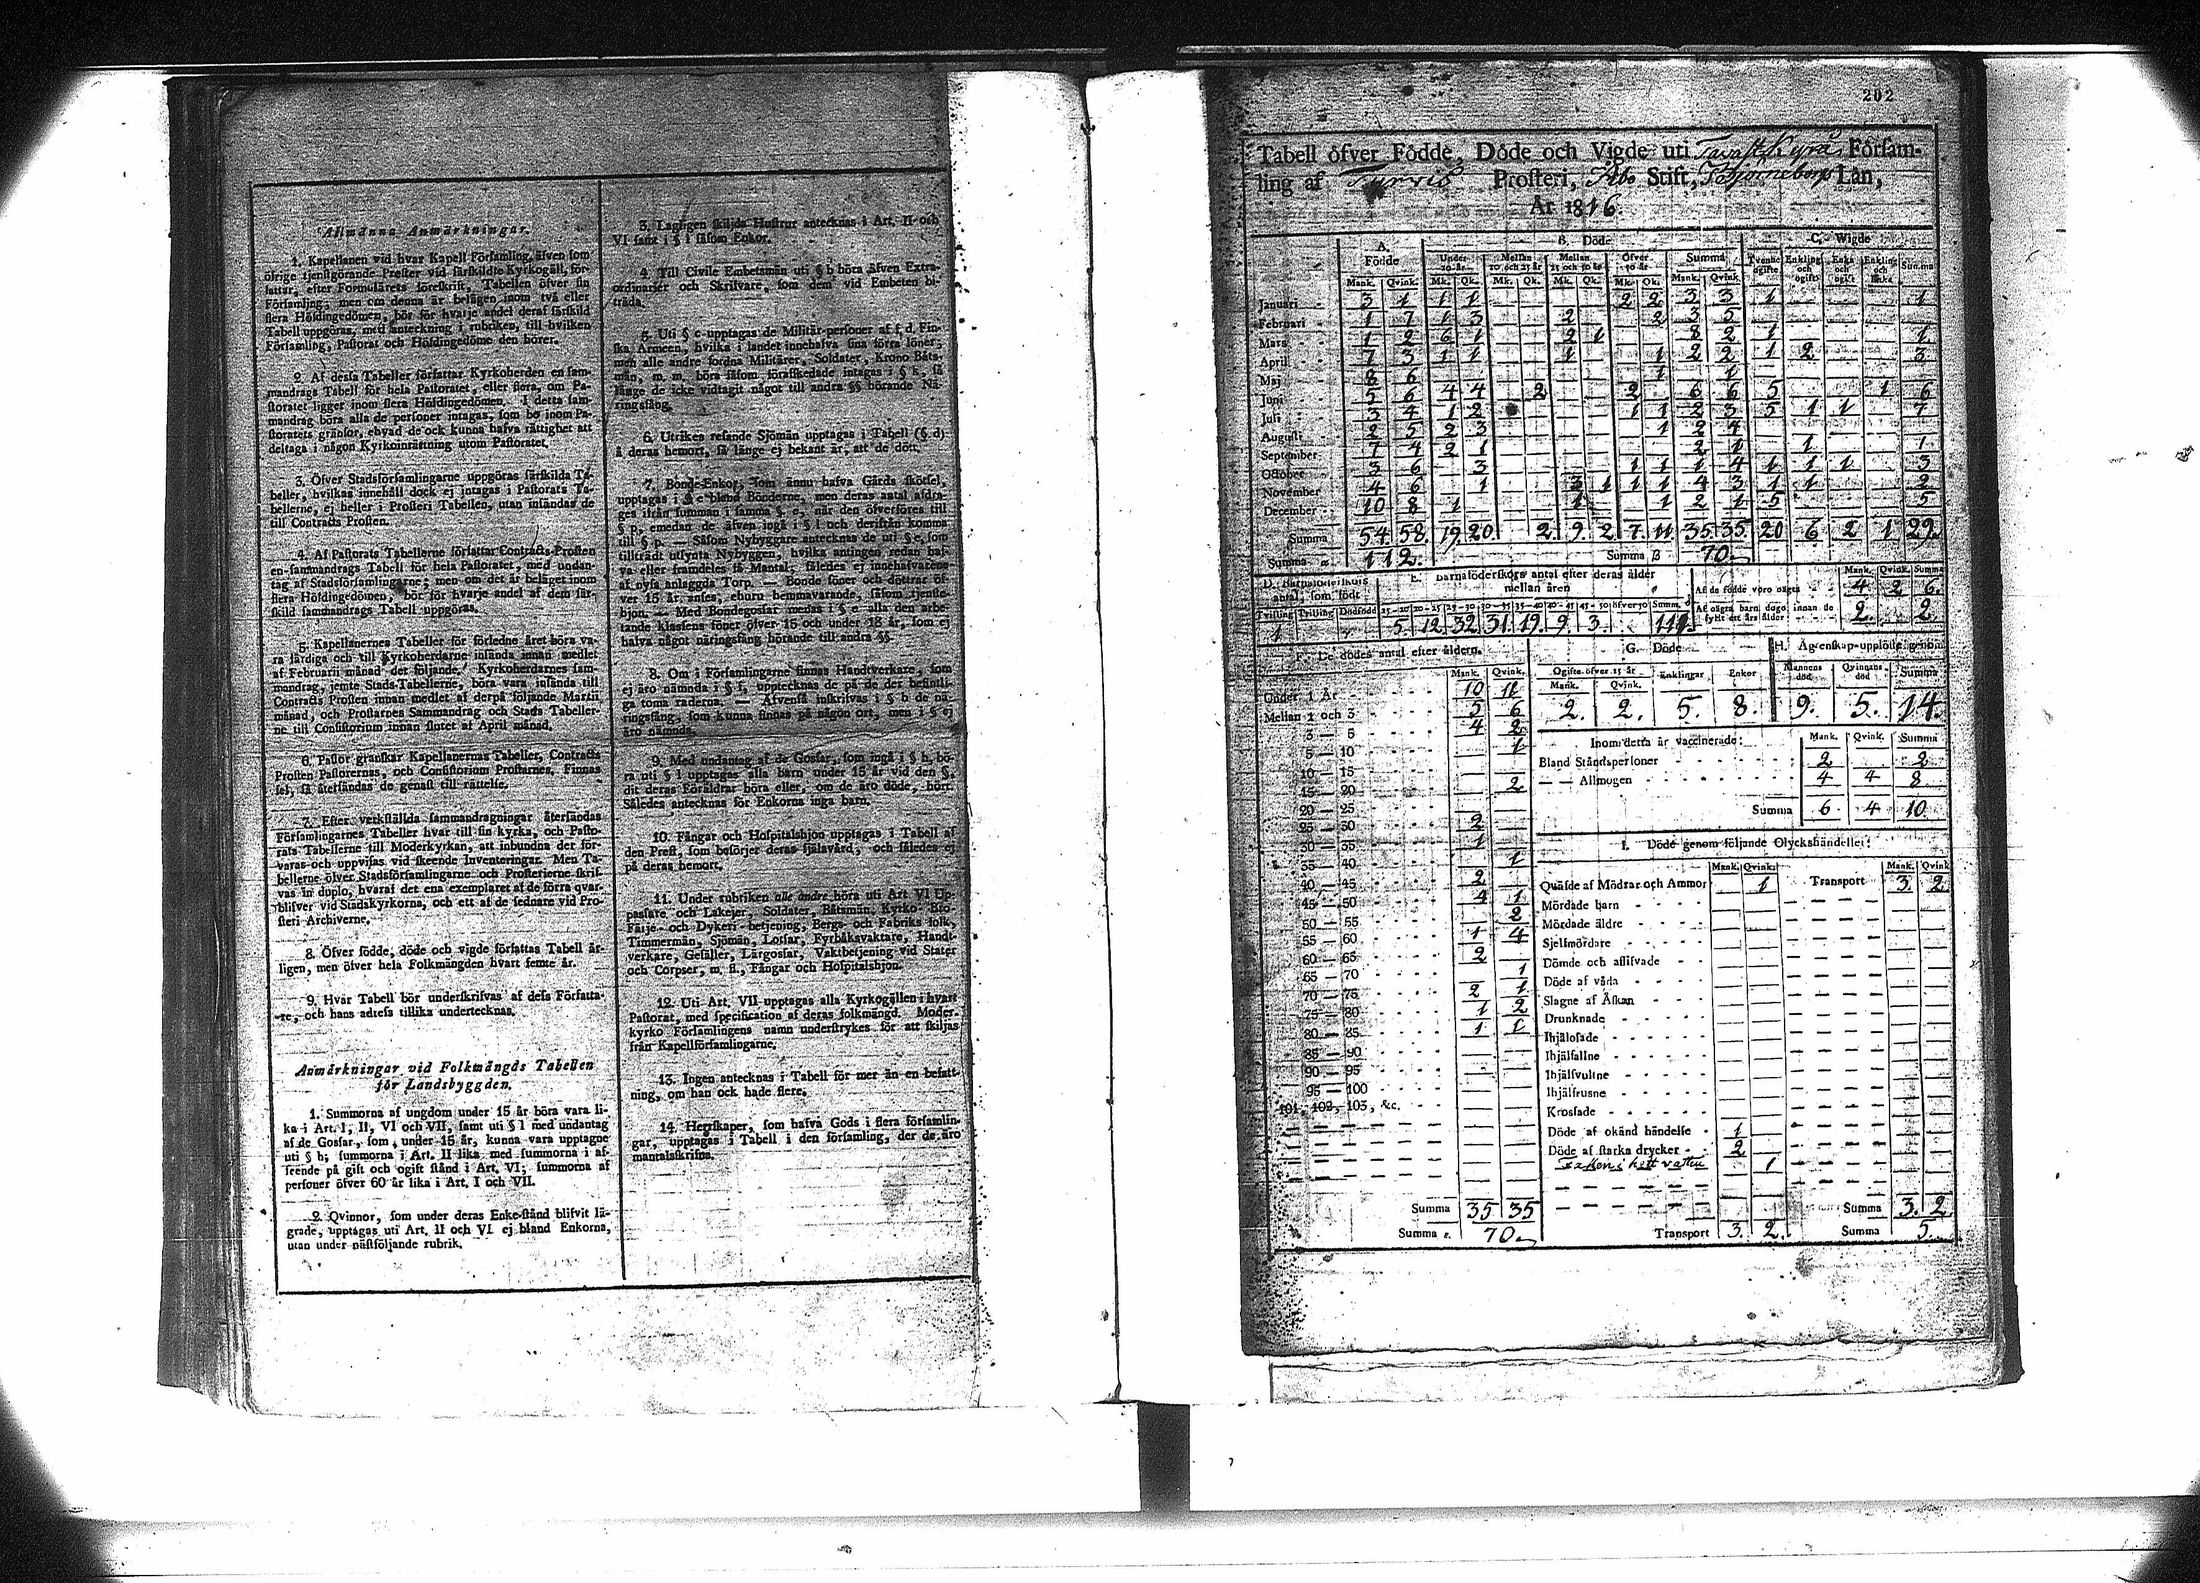 Allmänna Anmärkningar.
1. Kapellanen vid hvar Kapell Församling, äfven som
öfrige tjenstgörande Prester vid särskildte Kyrkogäll, för-
fattar, efter Formulärets föreskrift, Tabellen öfver sin
Församling; men om denna är belägen inom två eller
flera Höfdingedömen, bör för hvarje andel deraf särskild
Tabell uppgöras, med anteckning i rubriken, till hvilken
Församling, Pastorat och Höfdingedöme den hörer.
2. Af dessa Tabeller författar Kyrkoherden en sam-
mandrags Tabell för hela Pastoratet, eller flera, om Pa-
storatet ligger inom flera Höfdingedömen. I detta sam-
mandrag böra alla de personer intagas, som bo inom Pa-
storatets gränsor, ehvad de ock kunna hafva rättighet att
deltaga i någon Kyrkoinrättning utom Pastoratet.
3. Öfver Stadsförsamlingarne uppgöras särskilda Ta-
beller, hvilkas innehåll dock ej intages i Pastorats Ta-
bellerne, ej heller i Prosteri Tabellen, utan insändas de
till Contracts Prosten.
4. Af Pastorats Tabellerne författar Contracts-Prosten
en sammandrags Tabell för hela Pastoratet, med undan-
tag af Stadsförsamlingarne; men om det är beläget inom
flera Höfdingedömen, bör för hvarje andel af dem sär-
skild sammandrags Tabell uppgöras.
5. Kapellanernes Tabeller för förledne året böra va-
ra färdiga och till Kyrkoherden insända innan medlet
af Februarii månad det följande. Kyrkoherdarnes sam-
mandrag, jemte Stads-Tabellerne, böra vara insända till
Contracts Prosten innan medlet af derpå följande Martii
månad, och Prostarnes Sammandrag och Stads Tabeller-
ne till Consistorium innan slutet af April månad.
6. Pastor granskar Kapellanernas Tabeller, Contracts
Prosten Pastorernas, och Consistorium Prostarnes. Finnas
fel, så återsändas de genast till rättelse.
7. Efter verkställda sammandragningar återsändas
Församlingarnes Tabeller hvar till sin kyrka, och Pasto-
rats Tabellerne till Moderkyrkan, att inbundna der för-
varas och uppvisas vid skeende Inventeringar. Men Ta-
bellerne öfver Stadsförsamlingarne och Prosterierne skrif-
vas in duplo, hvaraf det ena exemplaret af de förra qvar-
blifver vid Stadskyrkorna, och ett af de sednare vid Pro-
steri Archiverne.
8. Öfver födde, döde och vigde författas Tabell år-
ligen, men öfver hela Folkmängden hvart femte år.
9. Hvar Tabell bör underskrifvas af dess Författa-
re, och hans adress tillika undertecknas.
Anmärkningar vid Folkmängds Tabellen
för Landsbyggden.
1. Summorna af ungdom under 15 år böra vara li-
ka i Art. I, II, VI och VII, samt uti § l med undantag
af de Gossar, som, under 15 år, kunna vara upptagne
uti § h; summorna i Art. II lika med summorna i af-
seende på gift och ogift stånd i Art. VI; summorna af
personer öfver 60 år lika i Art. I och VII.
2. Qvinnor, som under deras Enke-stånd blifvit lä-
grade, upptagas uti Art. II och VI ej bland Enkorna,
utan under nästföljande rubrik.
3. Lagligen skiljda Hustrur antecknas i Art. II och
VI samt i § l såsom Enkor.
4. Till Civile Embetsmän uti § b höra äfven Extra-
ordinarier och Skrifvare, som dem vid Embeten bi-
träda.
5. Uti § c upptagas de Militär-personer af f. d. Fin-
ska Armeen, hvilka i landet innehafva sina förra löner;
men alle andre fordna Militärer, Soldater, Krono Båts-
män, m. m. böra såsom förafskedade intagas i § k, så
länge de icke vidtagit något till andra §§ hörande Nä-
ringsfång.
6. Utrikes resande Sjömän upptagas i Tabell (§ d)
å deras hemort, så länge ej bekant är, att de dött.
7. Bonde-Enkor, som ännu hafva Gårds skötsel,
upptagas i § e bland Bönderne, men deras antal afdra-
ges ifrån summan i samma § e, när den öfverföres till
§ p, emedan de äfven ingå i § l och derifrån komma
till § p. — Såsom Nybyggare antecknas de uti § e, som
tillträdt utsynta Nybyggen, hvilka antingen redan haf-
va eller framdeles få Mantal; således ej innehafvarene
af nyss anlaggda Torp. — Bonde söner och döttrar öf-
ver 15 år anses, ehuru hemmavarande, såsom tjenste-
hjon. — Med Bondegossar menas i § e alla den arbe-
tande klassens söner öfver 15 och under 18 år, som ej
hafva något näringsfång hörande till andra §§.
8. Om i Församlingarne finnas Handtverkare, som
ej äro nämnda i § f, upptecknas de på de der befintli-
ga toma raderna. — Äfvenså inskrifvas i § b de nä-
ringsfång, som kunna finnas på någon ort, men i § ej
äro nämnda.
9. Med undantag af de Gossar, som ingå i § h, bö-
ra uti § l upptagas alla barn under 15 år vid den §,
dit deras Föräldrar höra eller, om de äro döde, hört.
Således antecknas för Enkorna inga barn.
10. Fångar och Hospitalshjon upptagas i Tabell af
den Prest, som besörjer deras själavård, och således ej
på deras hemort.
11. Under rubriken alle andre höra uti Art VI Up-
passare och Lakejer, Soldater, Båtsmän, Kyrko-Bro-
Färje- och Dykeri-betjening, Bergs och Fabriks folk,
Timmermän, Sjömän, Lotsar, Fyrbåksvaktare, Handt-
verkare, Gesäller, Lärgossar, Vaktbetjening vid Stater
och Corpser, m. fl., Fångar och Hospitalshjon.
12. Uti Art. VII upptagas alla Kyrkogällen i hvart
Pastorat, med specification af deras folkmängd. Moder-
kyrko Församlingens namn understrykes för att skiljas
från Kapellförsamlingarne.
13. Ingen antecknas i Tabell för mer än en befatt-
ning, om han ock hade flere.
14. Herrskaper, som hafva Gods i flera församlin-
gar, upptagas i Tabell i den församling, der de äro
mantalsskrifna.
202
Tabell öfver Födde, Döde och Vigde uti Tavastkyrå Församling
ling af Tyrvis Prosteri, Åbo Stift, Björneborgs Län,
År 1816.
A. Födde B. Döde C. Wigde
Under 10 år. Mellan 10 och 25 år Mellan 25 och 50 år Öfver 50 år Summa Tvenne ogifte Enkling och ogift Enka och ogift Enkling och Enka Summa
Mank. Qvink. Mk. Qk. Mk. Qk. Mk. Qk. Mk. Qk. Mank. Qvink.
Januari 3 1 1 1 2 2 3 3 1 1
Februari 1 7 1 3 2 2 3 5
Mars 1 2 6 1 2 1 8 2 1 1
April 7 3 1 1 1 1 2 2 1 2 3
Maj 8 6 1 1
Juni 5 6 4 4 2 2 6 6 5 1 6
Juli 3 4 1 2 1 1 2 3 5 1 1 7
Augusti 2 5 2 3 1 2 4
September 7 4 2 1 2 1 1 1
October 3 6 3 1 1 1 4 1 1 1 3
November 4 6 1 3 1 1 1 4 3 1 1 2
December 10 8 1 1 1 2 1 5 5
Summa 54. 58. 19. 20. 2. 9. 2. 7. 11. 35. 35. 20 6. 2 1 29.
Summa α. 112. Summa β 70.
D. Barnsföderskors antal, som födt
E. Barnsföderskors antal efter deras ålder mellan åren
Mank. Qvink. Summa
Af de födde voro oägta 4 2 6.
Af oägta barn dogo innan de fyllt ett års ålder 2. 2.
Tvilling Trilling Dödfödd 15—20 20—25 25—30 30—35 35—40 40—45 45—50 öfver 50 Summ.
1 5. 12. 32. 31. 19. 9 3. 111.
F. De dödes antal efter åldern.
Mank. Qvink.
Under 1 År 10 11
Mellan 1 och 3 5 6
3 — 5 4 2
5 — 10 1
10 — 15
15 — 20 2
20 — 25
25 — 30 2
30 — 35 1
35 — 40 1
40 — 45 2
45 — 50 4 1
50 — 55 2
55 — 60 1 4
60 — 65 2
65 — 70 1
70 — 75 2 1
75 — 80 1 2
80 — 85 1 1
85 — 90
90 — 95
95 — 100
101, 102, 103, &c.
Summa 35 35
Summa ε. 70.
G. Döde
Ogifte öfver 15 år Enklingar Enkor
Mank. Qvink.
2. 2. 5. 8.
H. Ägtenskap upplöste genom
Mannens död Qvinnans död Summa
9. 5. 14.
Inom detta år vaccinerade: Mank. Qvink. Summa
Bland Ståndspersoner 2 2
— — Allmogen 4 4 8
Summa 6 4 10
I. Döde genom följande Olyckshändelser:
Mank. Qvink. Mank. Qvink
Quäfde af Mödrar och Ammor 1 Transport 3. 2
Mördade barn
Mördade äldre
Sjelfmördare
Dömde och aflifvade
Döde af våda
Slagne af Åskan
Drunknade
Ihjälosade
Ihjälfallne
Ihjälsvultne
Ihjälfrusne
Krossade
Döde af okänd händelse 1
Döde af starka drycker 2
Fallen i hett vatten 1
Transport 3. 2.
Summa 3. 2
Summa 5.